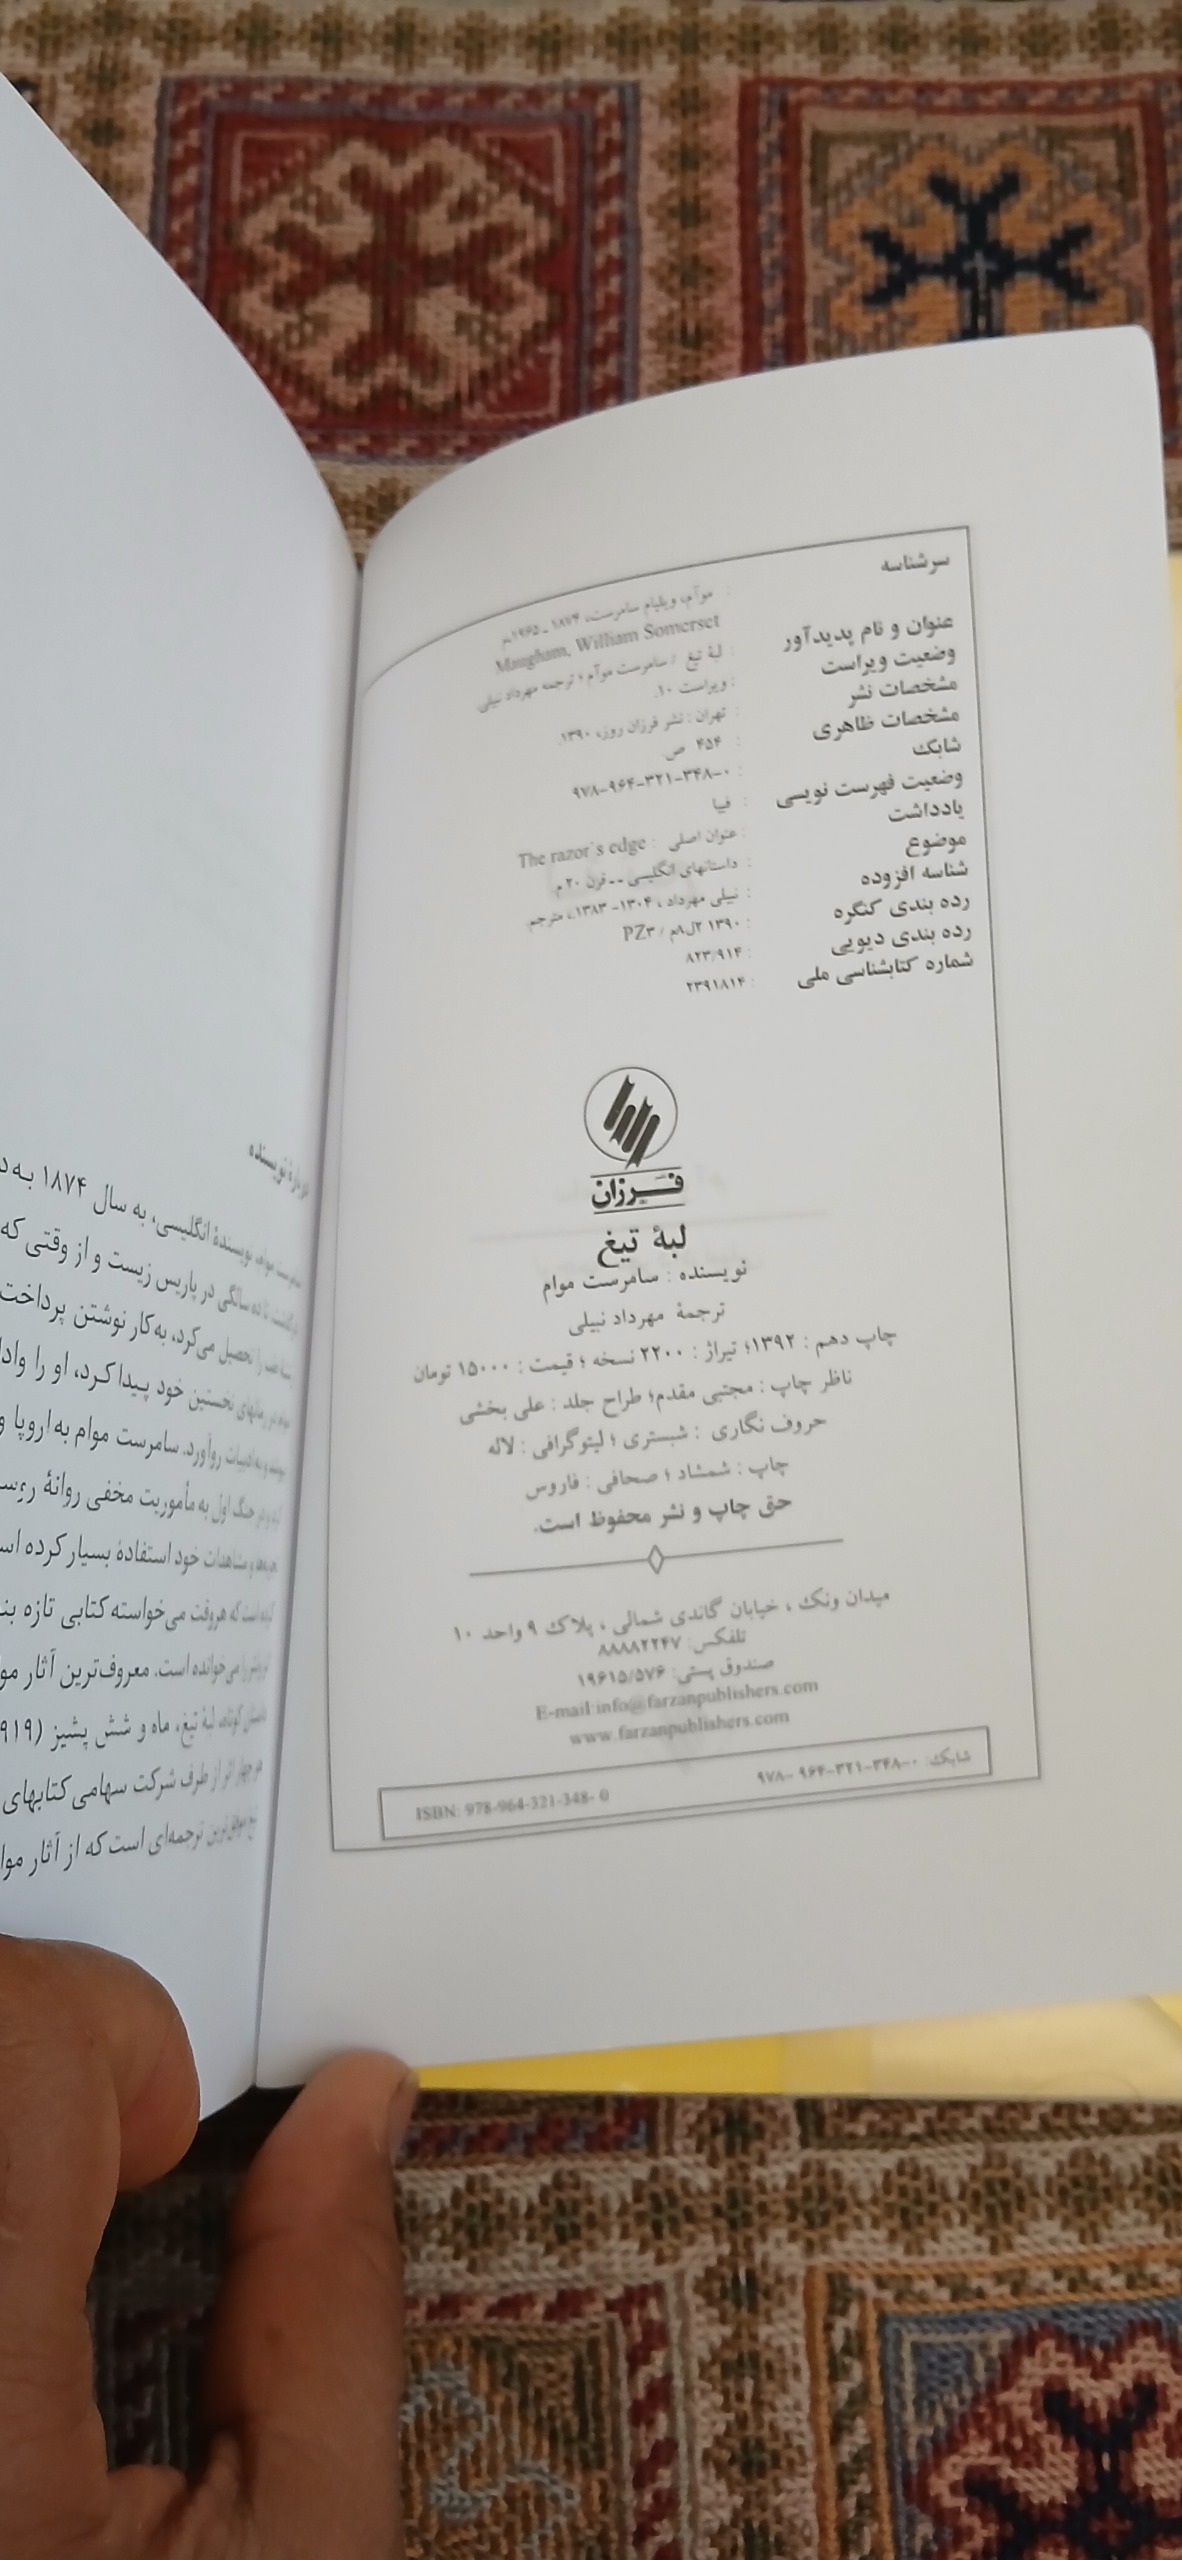 سرشناسه : موآم، ویلیام سامرست، ۱۸۷۴ - ۱۹۶۵م
Maugham, William Somerset
عنوان و نام پدیدآور : لبهٔ تیغ / سامرست موآم ؛ ترجمه مهرداد نبیلی.
وضعیت ویراست : ویراست ۱۰.
مشخصات نشر : تهران : نشر فرزان روز، ۱۳۹۰.
مشخصات ظاهری : ۴۵۴ ص.
شابک : ۹۷۸-۹۶۴-۳۲۱-۳۴۸-۰
وضعیت فهرست نویسی : فیپا
یادداشت : عنوان اصلی : The razor's edge
موضوع : داستانهای انگلیسی -- قرن ۲۰ م.
شناسه افزوده : نبیلی مهرداد ، ۱۳۰۴- ۱۳۸۳، مترجم.
رده بندی کنگره : ۱۳۹۰ ۲ل۸م / PZ۳
رده بندی دیویی : ۸۲۳/۹۱۴
شماره کتابشناسی ملی : ۲۳۹۱۸۱۴
فرزان
لبهٔ تیغ
نویسنده : سامرست موام
ترجمهٔ مهرداد نبیلی
چاپ دهم : ۱۳۹۲؛ تیراژ : ۲۲۰۰ نسخه ؛ قیمت : ۱۵۰۰۰ تومان
ناظر چاپ : مجتبی مقدم؛ طراح جلد : علی بخشی
حروف نگاری : شبستری ؛ لیتوگرافی : لاله
چاپ : شمشاد ؛ صحافی : فاروس
حق چاپ و نشر محفوظ است.
میدان ونک ، خیابان گاندی شمالی ، پلاک ۹ واحد ۱۰
تلفکس: ۸۸۸۸۲۲۴۷
صندوق پستی: ۱۹۶۱۵/۵۷۶
E-mail:info@farzanpublishers.com
www.farzanpublishers.com
شابک: ۰-۳۴۸-۳۲۱-۹۶۴-۹۷۸ ISBN: 978-964-321-348-0
دربارهٔ نویسنده
سامرست موام، نویسندهٔ انگلیسی، به سال ۱۸۷۴ به
تا ده سالگی در پاریس زیست و از وقتی که
را تحصیل می‌کرد، به‌کار نوشتن پرداخت
رمانهای نخستین خود پیدا کرد، او را
ادبیات روآورد. سامرست موام به اروپا و
جنگ اول به مأموریت مخفی روانهٔ
و مشاهدات خود استفادهٔ بسیار کرده
است که هروقت می‌خواسته کتابی تازه
را می‌خوانده است. معروف‌ترین آثار
داستان کوتاه، لبهٔ تیغ، ماه و شش پشیز
چهار اثر از طرف شرکت سهامی کتابهای
ترجمه‌ای است که از آثار